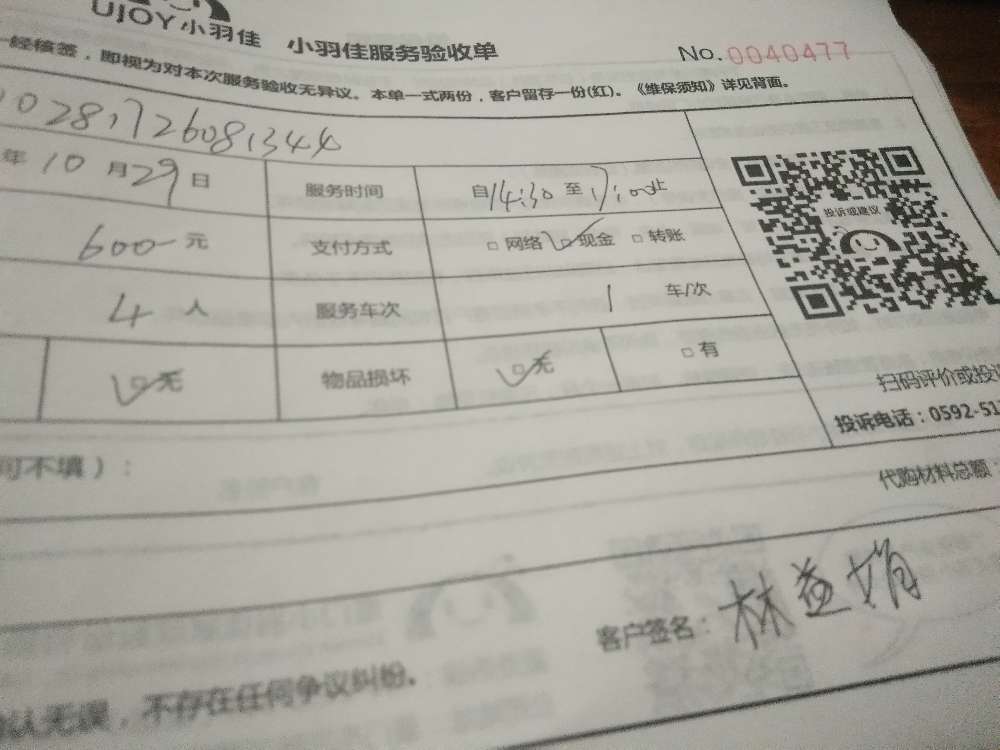 UJOY小羽佳 小羽佳服务验收单 No.0040477
一经核签，即视为对本次服务验收无异议。本单一式两份，客户留存一份(红)。《维保须知》详见背面。
10281726081344
年10月29日 服务时间 自14:30至17:00止
600元 支付方式 □网络 ☑现金 □转账
4人 服务车次 1 车/次
☑无 物品损坏 ☑无 □有
投诉或建议
扫码评价或投
投诉电话：0592-51
可不填）：
代购材料总额：
客户签名：林益娟
确认无误，不存在任何争议纠纷。